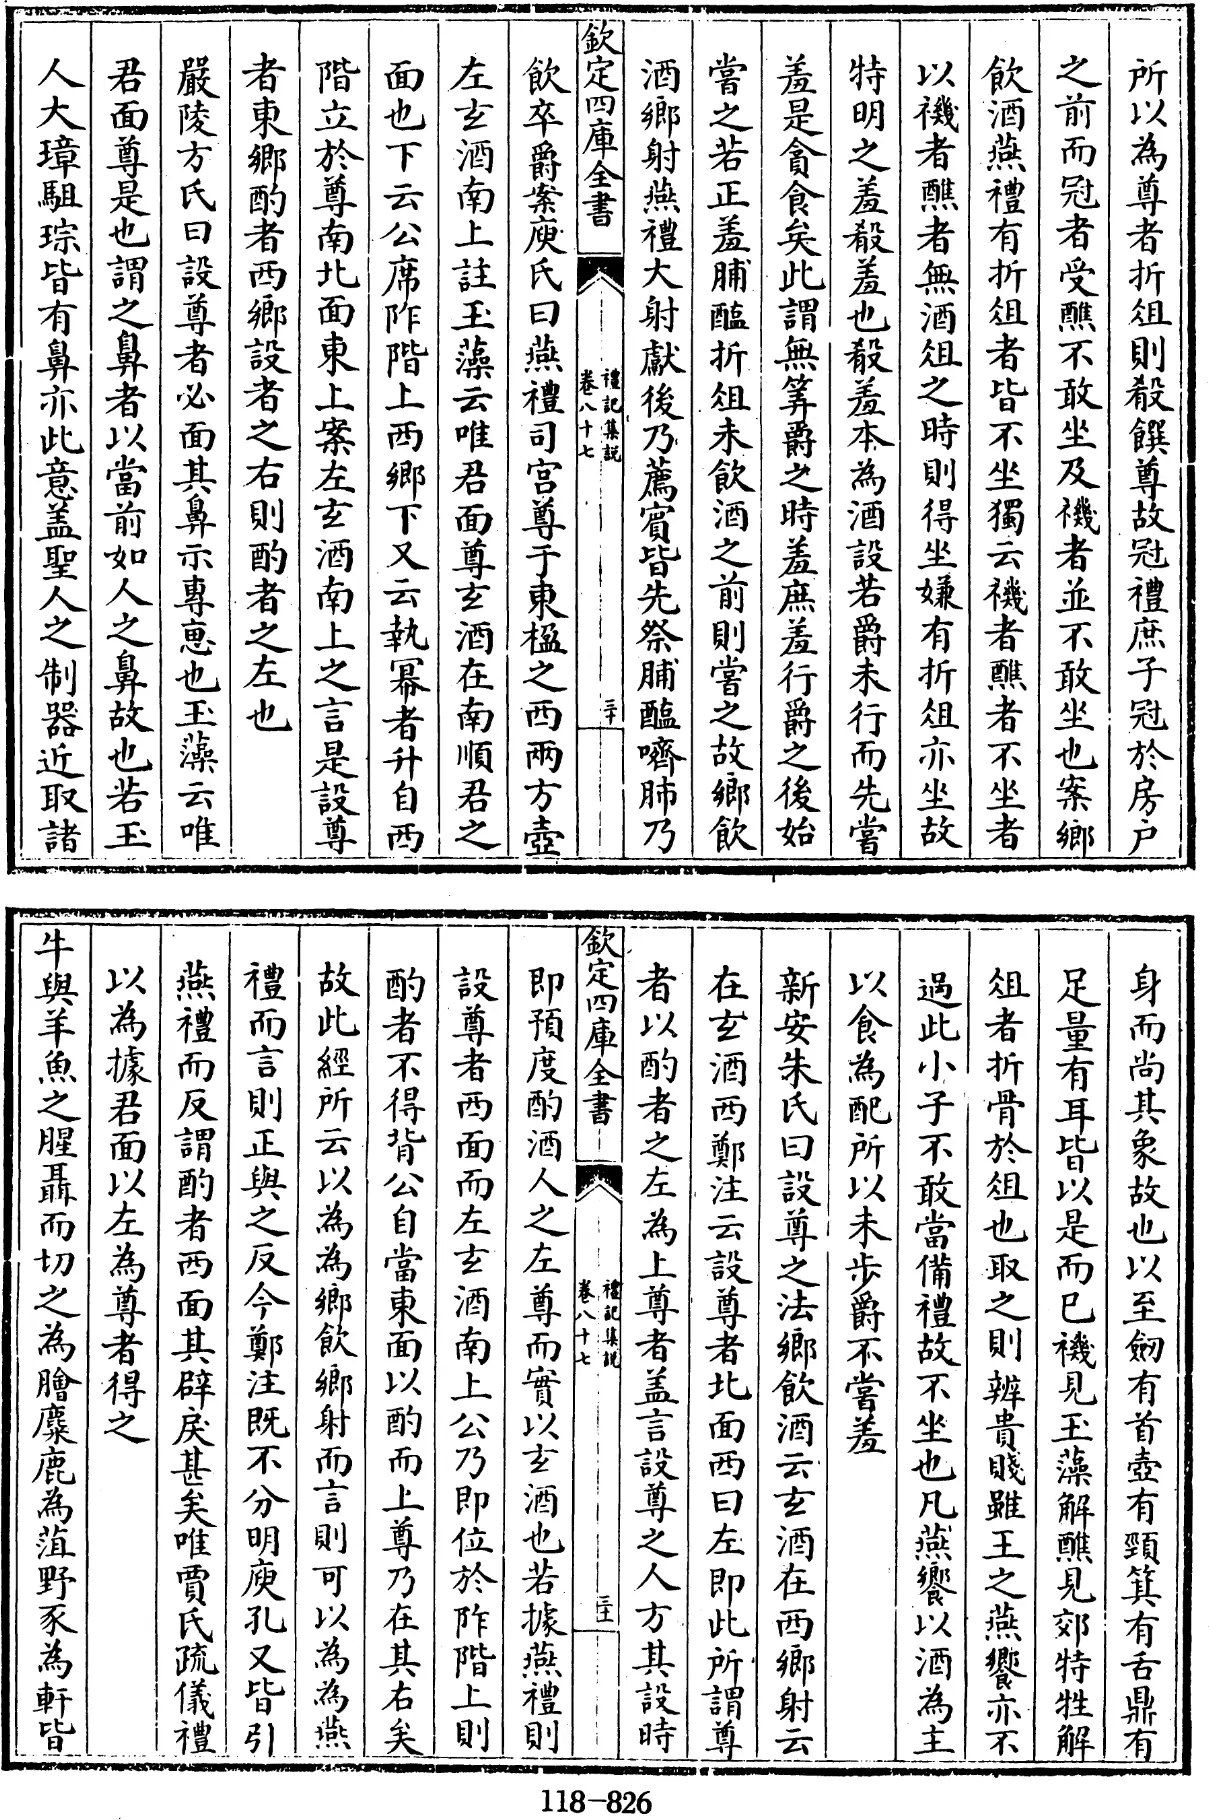 所以為尊者折俎則殽饌尊故冠禮庶子冠於房戶
之前而冠者受醮不敢坐及禨者並不敢坐也案鄉
飲酒燕禮有折俎者皆不坐獨云禨者醮者不坐者
以禨者醮者無酒俎之時則得坐嫌有折俎亦坐故
特明之羞殽羞也殽羞本為酒設若爵未行而先嘗
羞是貪食矣此謂無筭爵之時羞庶羞行爵之後始
嘗之若正羞脯醢折俎未飲酒之前則嘗之故鄉飲
酒鄉射燕禮大射獻後乃薦賓皆先祭脯醢嚌肺乃
欽定四庫全書
禮記集說
卷八十七
三十
飲卒爵案庾氏曰燕禮司宮尊于東楹之西兩方壺
左玄酒南上註玉藻云唯君面尊玄酒在南順君之
面也下云公席阼階上西鄉下又云執冪者升自西
階立於尊南北面東上案左玄酒南上之言是設尊
者東鄉酌者西鄉設者之右則酌者之左也
嚴陵方氏曰設尊者必面其鼻示專惠也玉藻云唯
君面尊是也謂之鼻者以當前如人之鼻故也若玉
人大璋駔琮皆有鼻亦此意盖聖人之制器近取諸
身而尚其象故也以至劒有首壺有頸箕有舌鼎有
足量有耳皆以是而已禨見玉藻解醮見郊特牲解
俎者折骨於俎也取之則辨貴賤雖王之燕饗亦不
過此小子不敢當備禮故不坐也凡燕饗以酒為主
以食為配所以未步爵不嘗羞
新安朱氏曰設尊之法鄉飲酒云玄酒在西鄉射云
在玄酒西鄭注云設尊者北面西曰左即此所謂尊
者以酌者之左為上尊者盖言設尊之人方其設時
欽定四庫全書
禮記集說
卷八十七
三十一
即預度酌酒人之左尊而實以玄酒也若據燕禮則
設尊者西面而左玄酒南上公乃即位於阼階上則
酌者不得背公自當東面以酌而上尊乃在其右矣
故此經所云以為為鄉飲鄉射而言則可以為為燕
禮而言則正與之反今鄭注既不分明庾孔又皆引
燕禮而反謂酌者西面其辟戾甚矣唯賈氏疏儀禮
以為據君面以左為尊者得之
牛與羊魚之腥聶而切之為膾麋鹿為菹野豕為軒皆
118-826